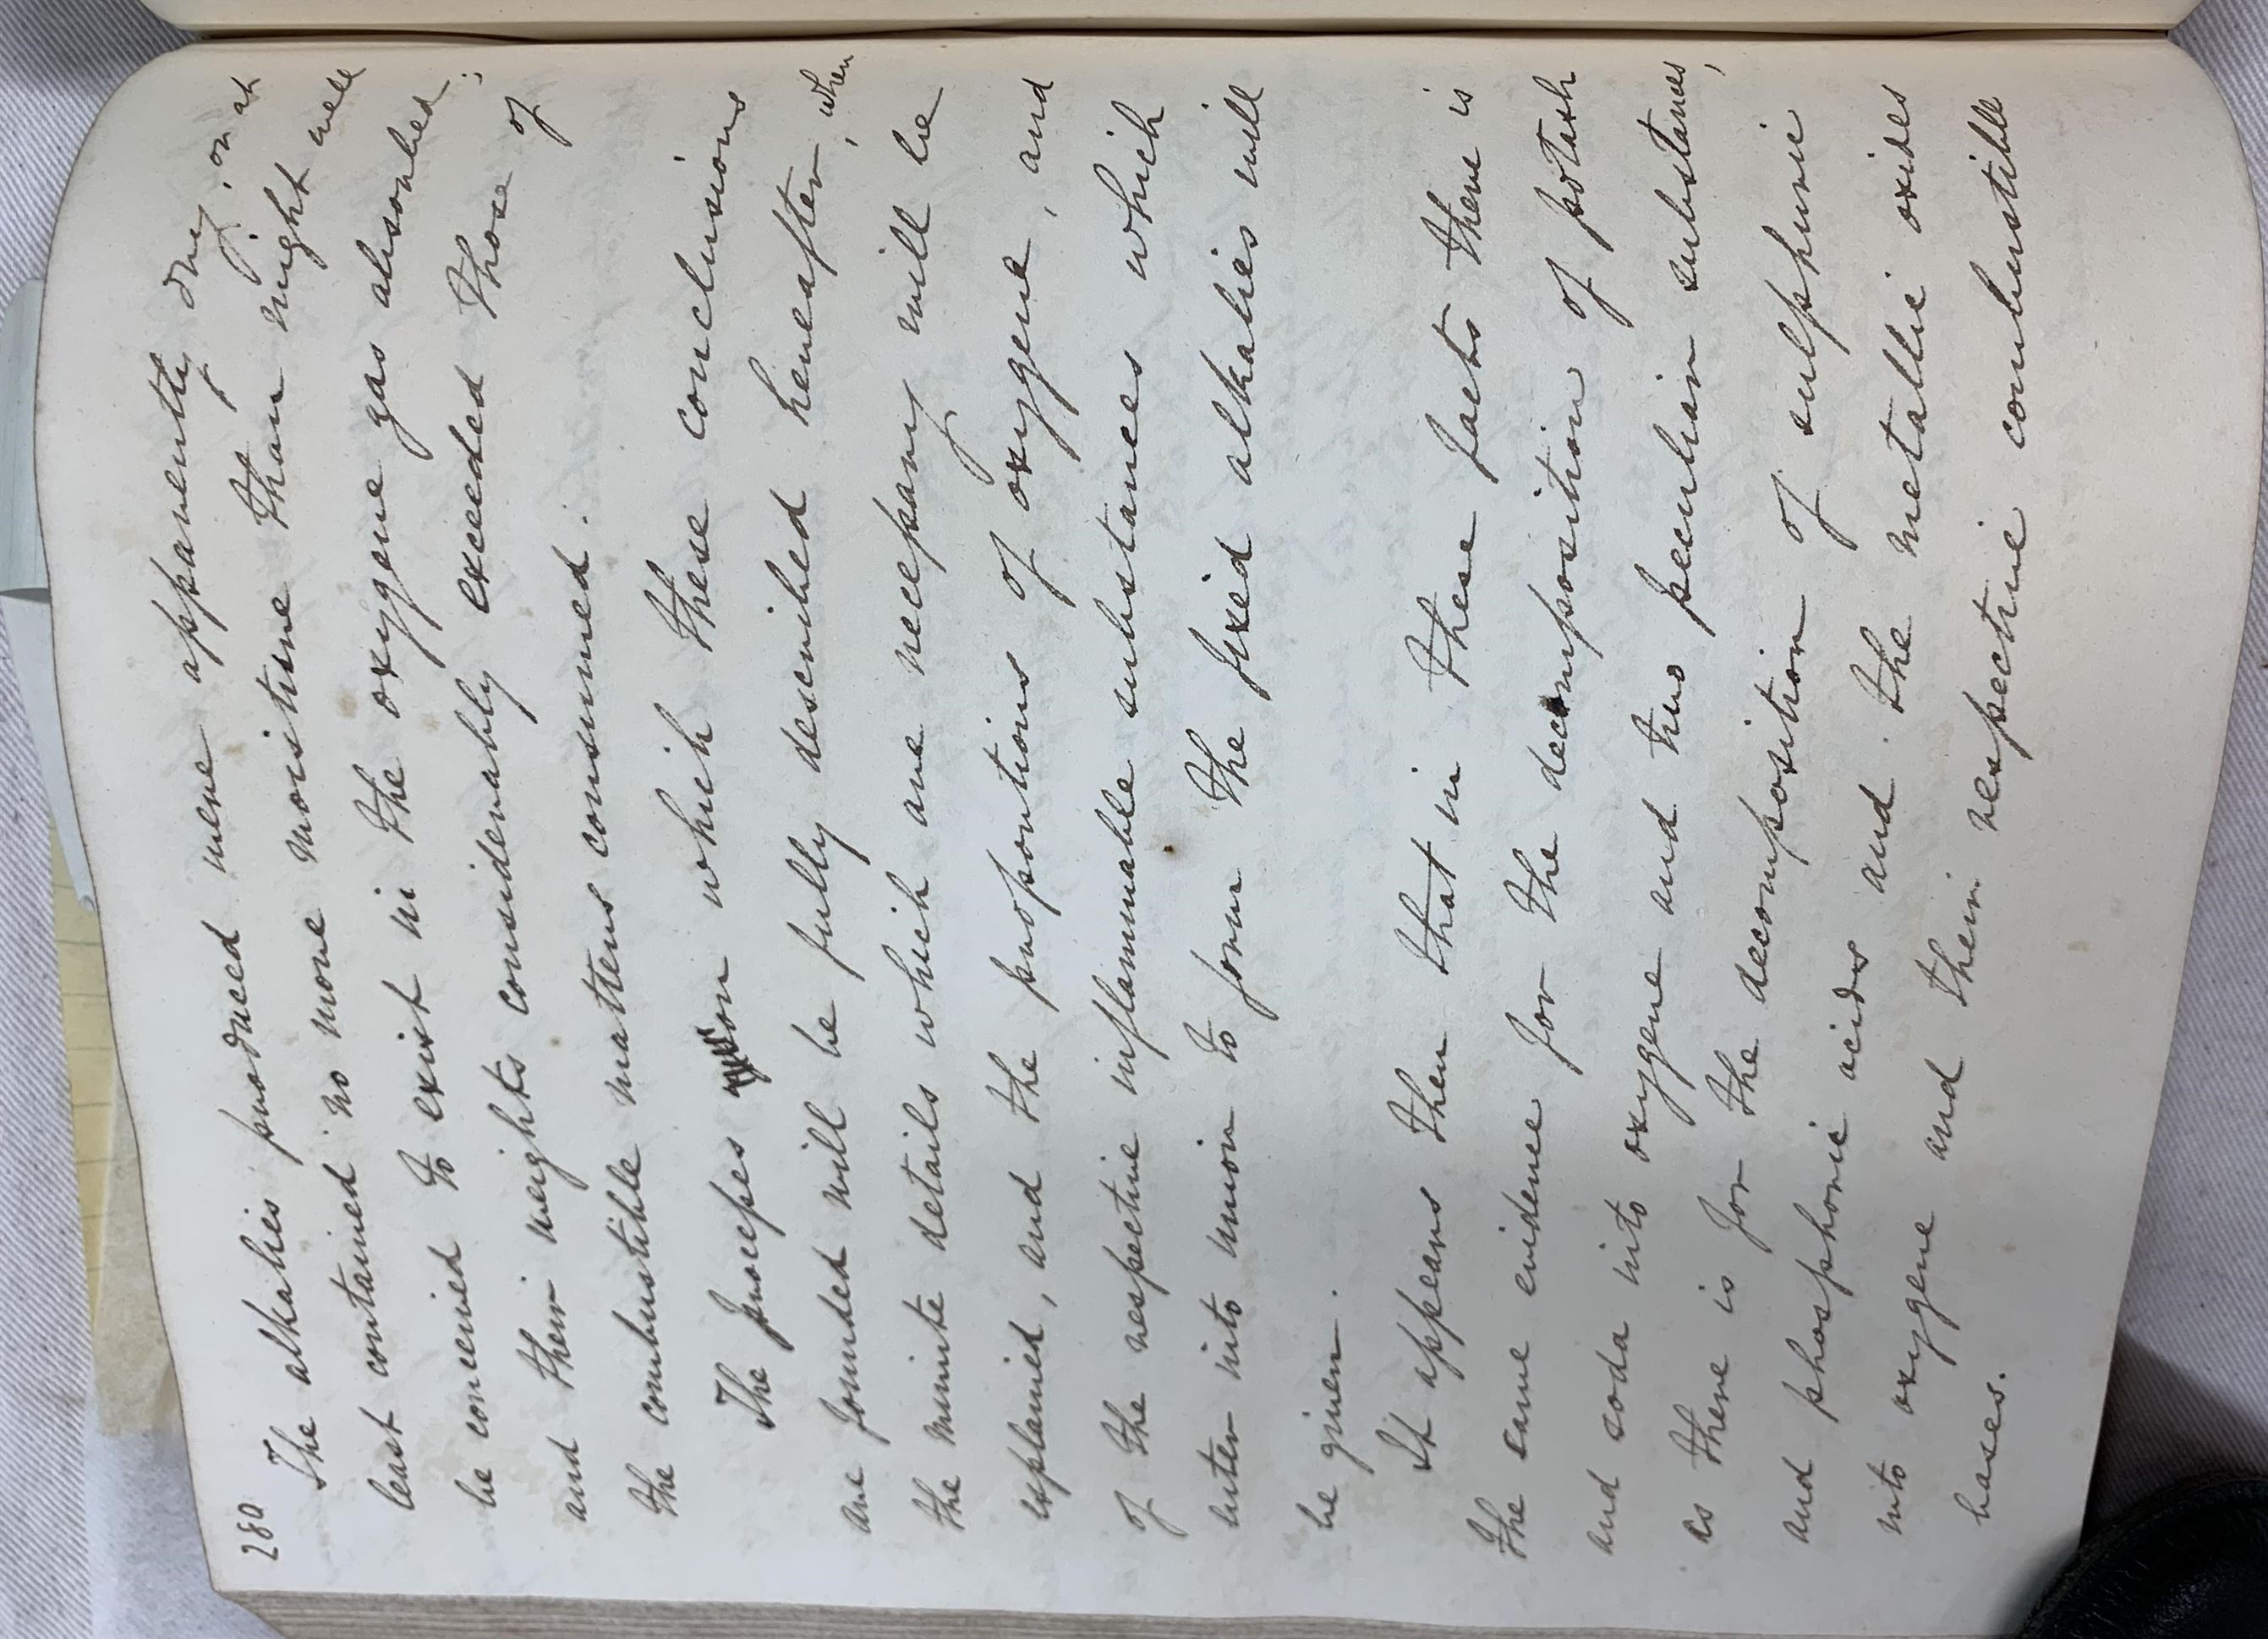 280
The alkalies produced were apparently dry, or at
least contained no more moisture than might well
be conceived to exist in the oxygene gas absorbed;
and their weights considerably exceeded those of
the combustible matters consumed.
The processes on which these conclusions
are founded will be fully described hereafter, when
the minute details which are necessary will be
explained, and the proportions of oxygene, and
of the respective inflammable substances which
enter into union to form the fixed alkalies will
be given.
It appears then that in these facts there is
the same evidence for the decomposition of potash
and soda into oxygene and two peculiar substances,
as there is for the decomposition of sulphuric
and phosphoric acids and the metallic oxides
into oxygene and their respective combustible
bases.